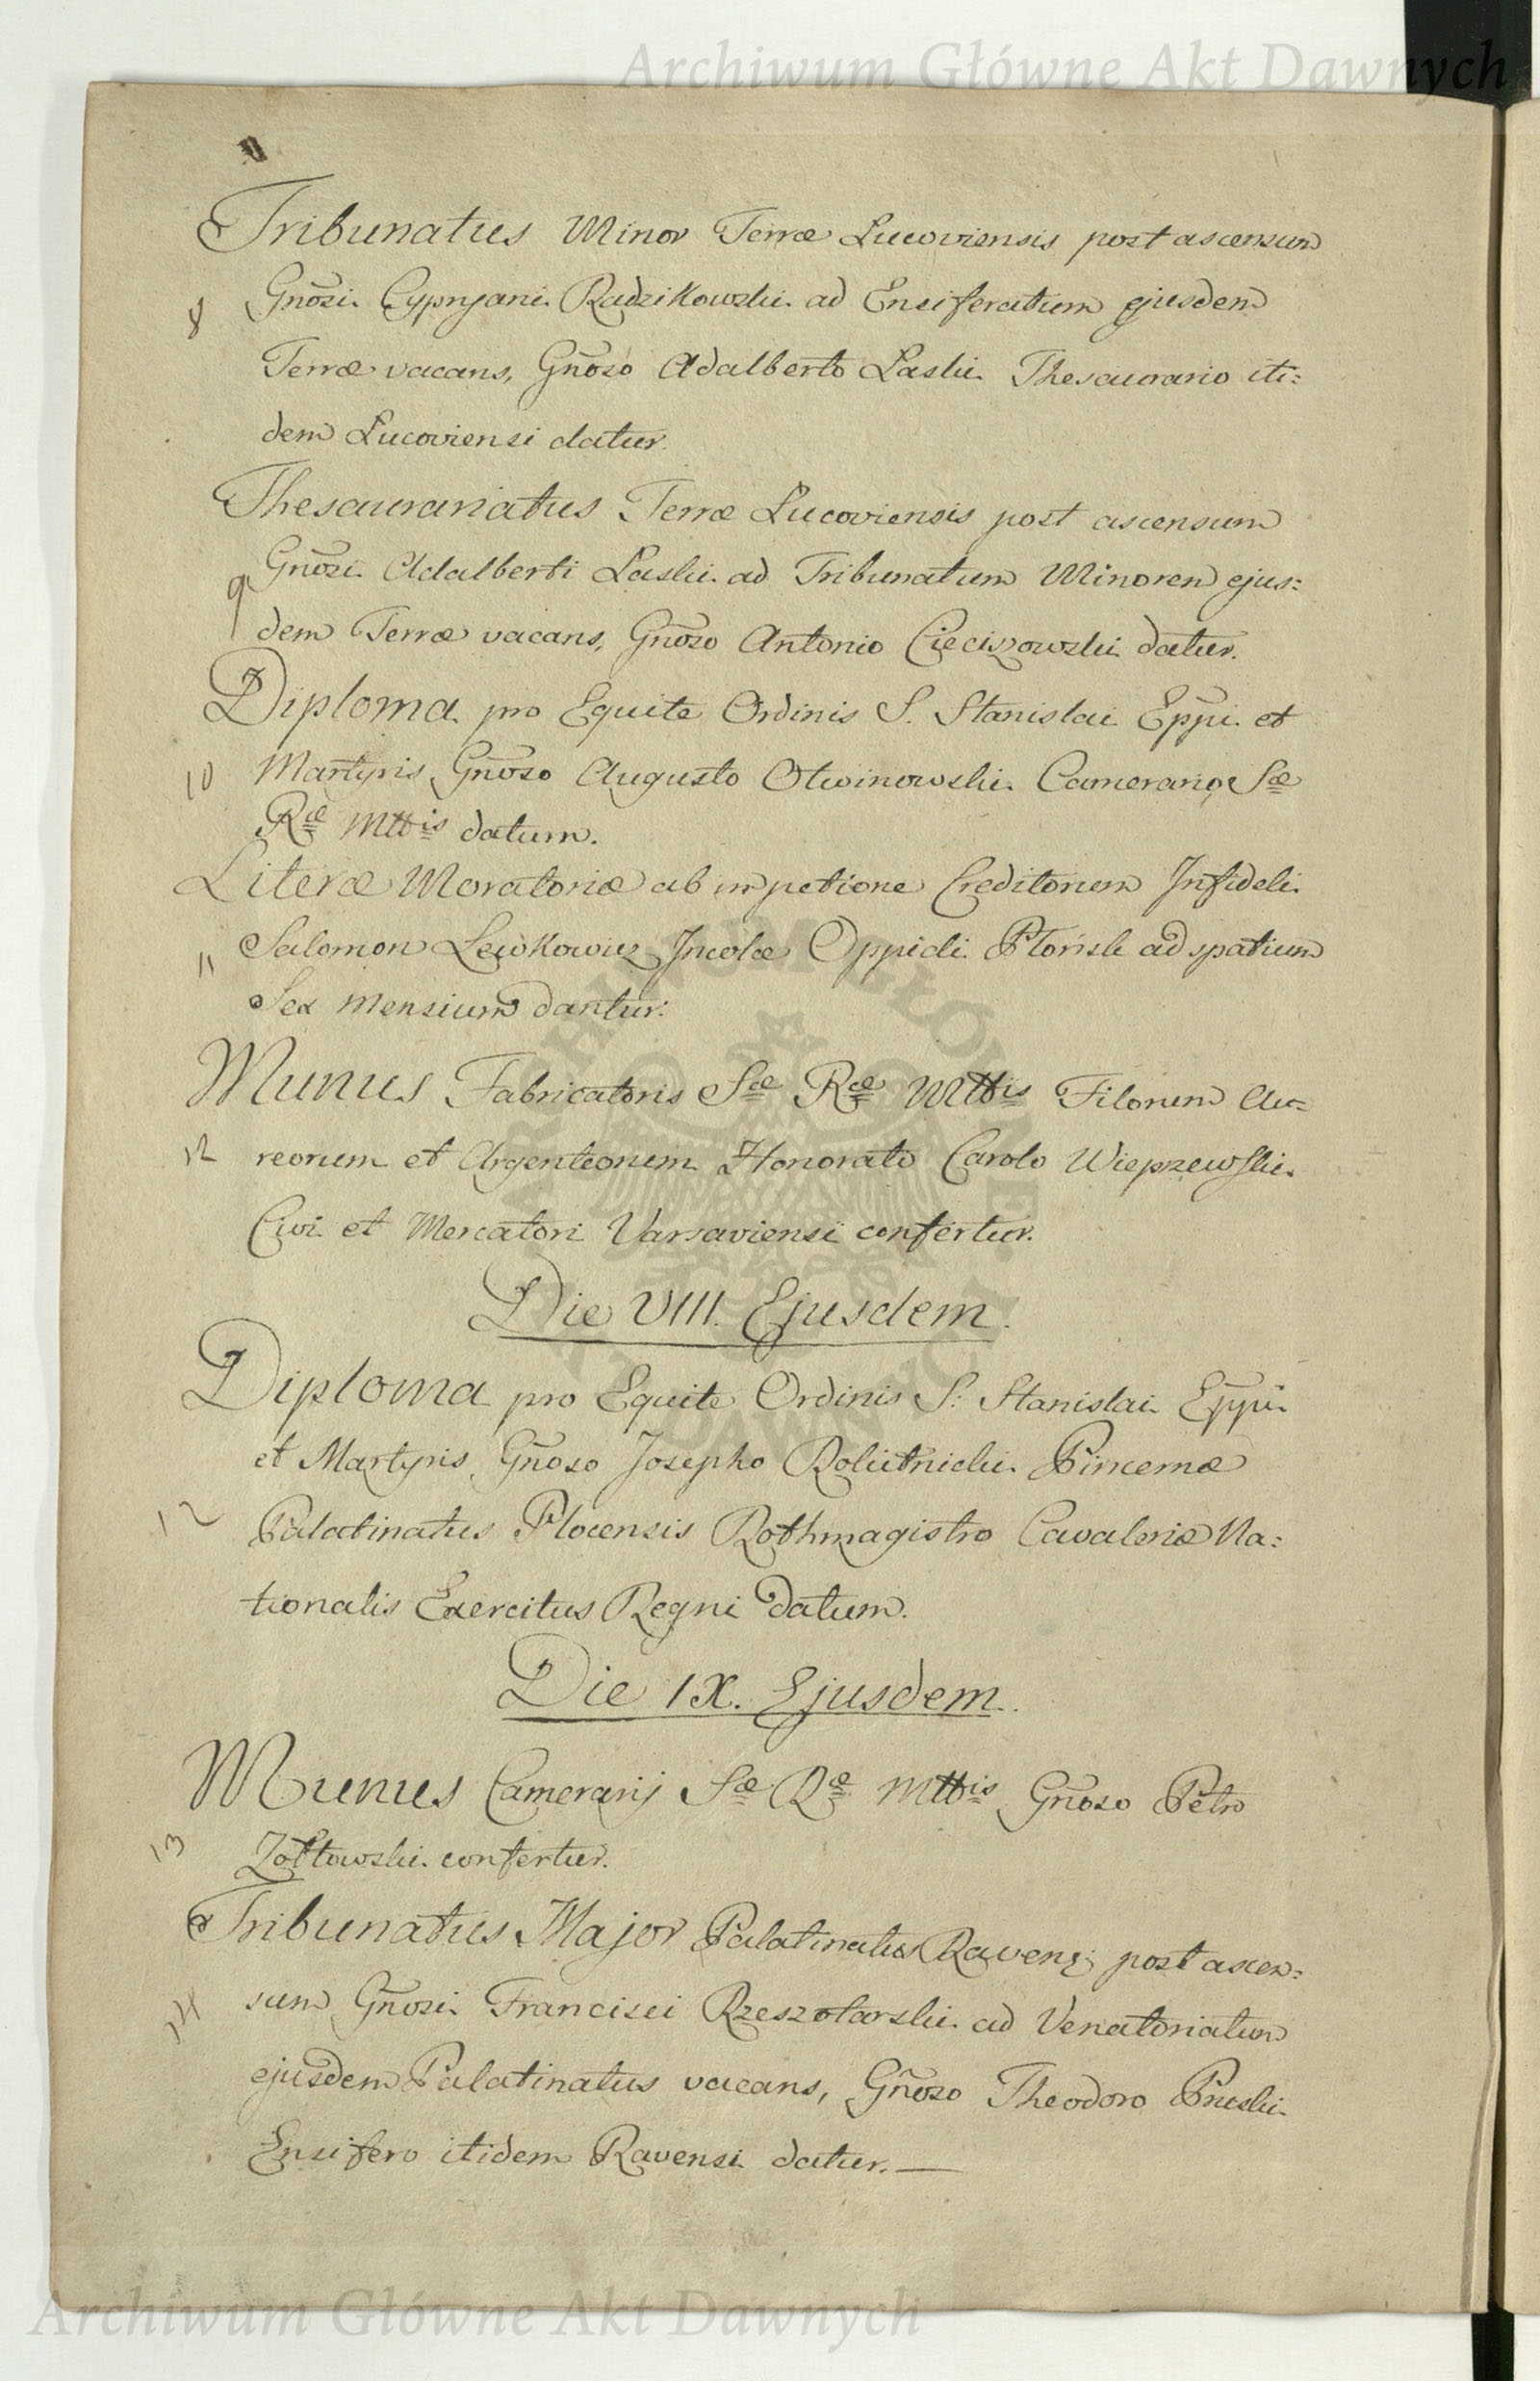 Archiwum Główne Akt Dawnych
Tribunatus Minor Terræ Lucoviensis post ascensum
8 Gnõsi Cypryani Radzikowski ad Ensiferatum ejusdem
Terræ vacans, Gnõso Adalberto Laski Thesaurario iti=
dem Lucoviensi datur.
Thesaurariatus Terræ Lucoviensis post ascensum
9 Gnõsi Adalberti Laski ad Tribunatum Minorem ejus=
dem Terræ vacans, Gnõso Antonio Cieciszowski datur.
Diploma pro Equite Ordinis S. Stanislai Epp̃i et
10 Martyris Gnõso Augusto Otwinowski Camerario Sæ
Ræ Mttis datum.
Literæ Moratoriæ ab impetione Creditorum Infideli
11 Salomon Lewkowicz Incolæ Oppidi Płońsk ad spatium
Sex Mensium dantur.
Munus Fabricatoris Sæ Ræ Mttis Filorum Au=
12 reorum et Argenteorum Honorato Carolo Wieprzewski
Civi et Mercatori Varsaviensi confertur.
Die VIII. Ejusdem.
Diploma pro Equite Ordinis S. Stanislai Epp̃i
et Martyris Gnõso Josepho Pincernæ
12 Palatinatus Plocensis Rothmagistro Cavaleriæ Na=
tionalis Exercitus Regni datum.
Die IX. Ejusdem.
Munus Camerarij Sæ Ræ Mttis Gnõso Petro
13 Zołtowski confertur.
Tribunatus Major Palatinatus Ravens; post ascen=
14 sum Gnõsi Francisci Rzeszotarski ad Venatoriatum
ejusdem Palatinatus vacans, Gnõso Theodoro Pruski
Ensifero itidem Ravensi datur. —
Archiwum Główne Akt Dawnych